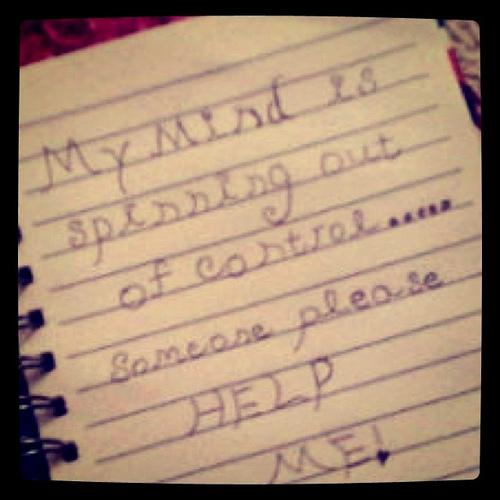 My Mind is
spinning out
of control.....
Someone please
HELP
ME!